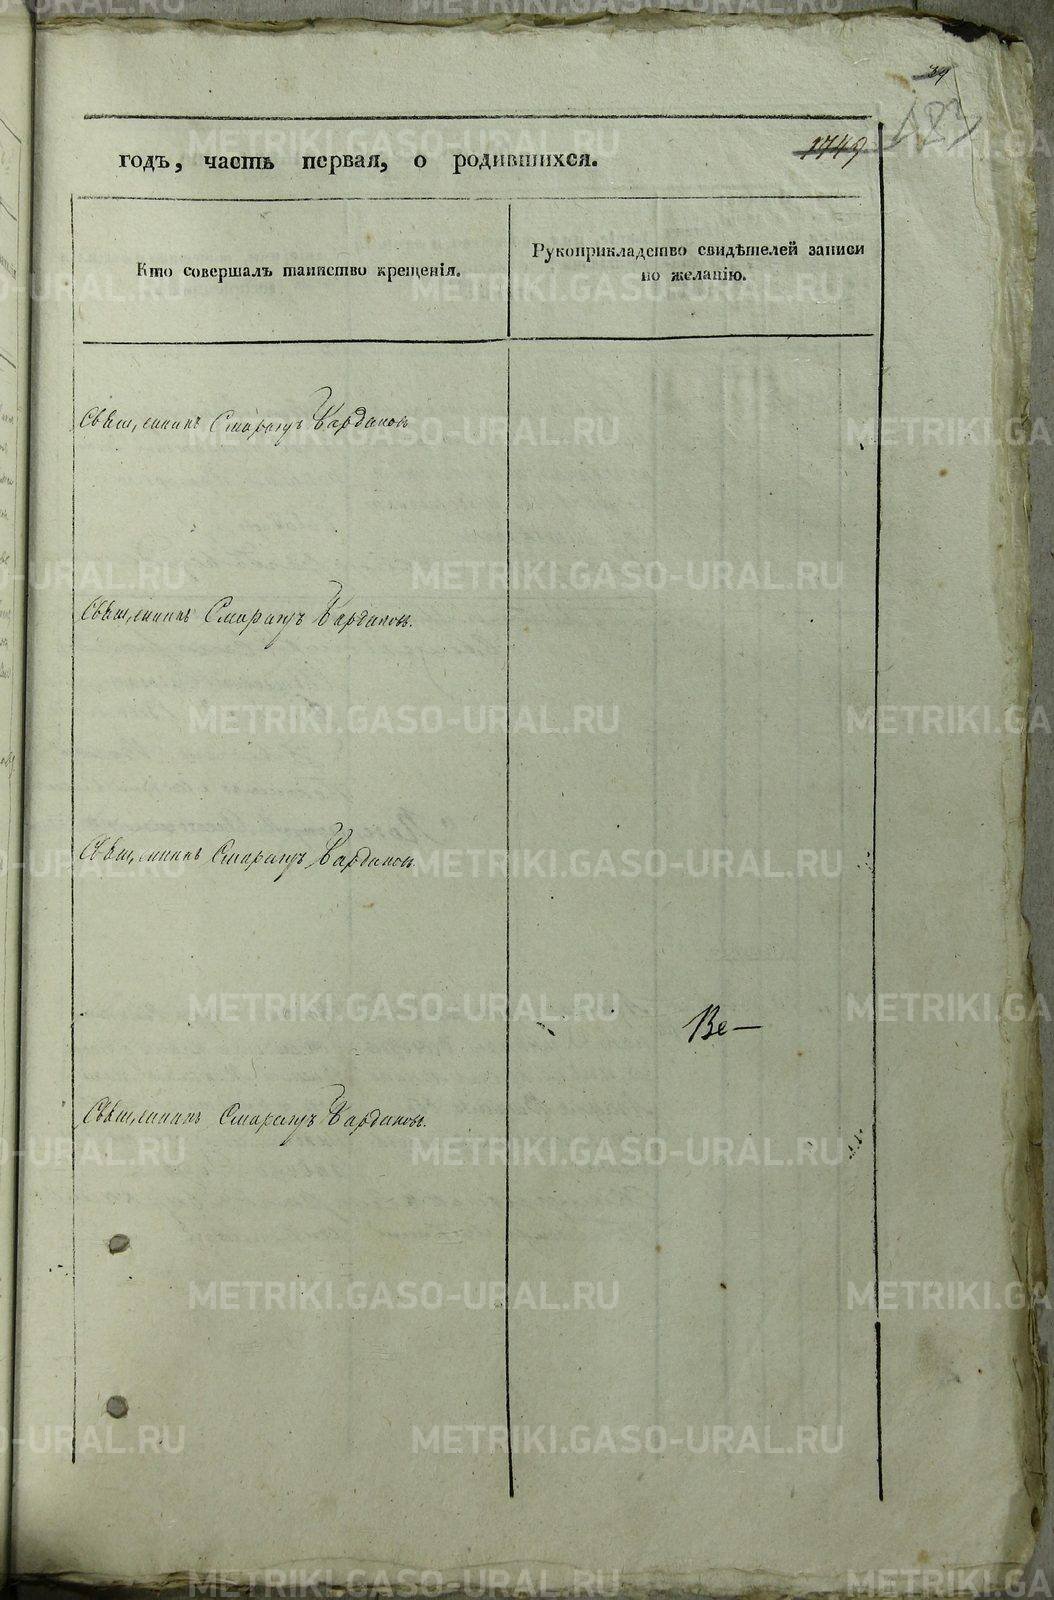 39
123
1749
годъ, часть первая, о родившихся.
Кто совершалъ таинство крещенія.
Рукоприкладство свидѣтелей записи
по желанію.
Священникъ Смарагдъ Вардановъ
Священникъ Смарагдъ Вардановъ.
Священникъ Смарагдъ Вардановъ.
Ве—
Священникъ Смарагдъ Вардановъ.
METRIKI.GASO-URAL.RU